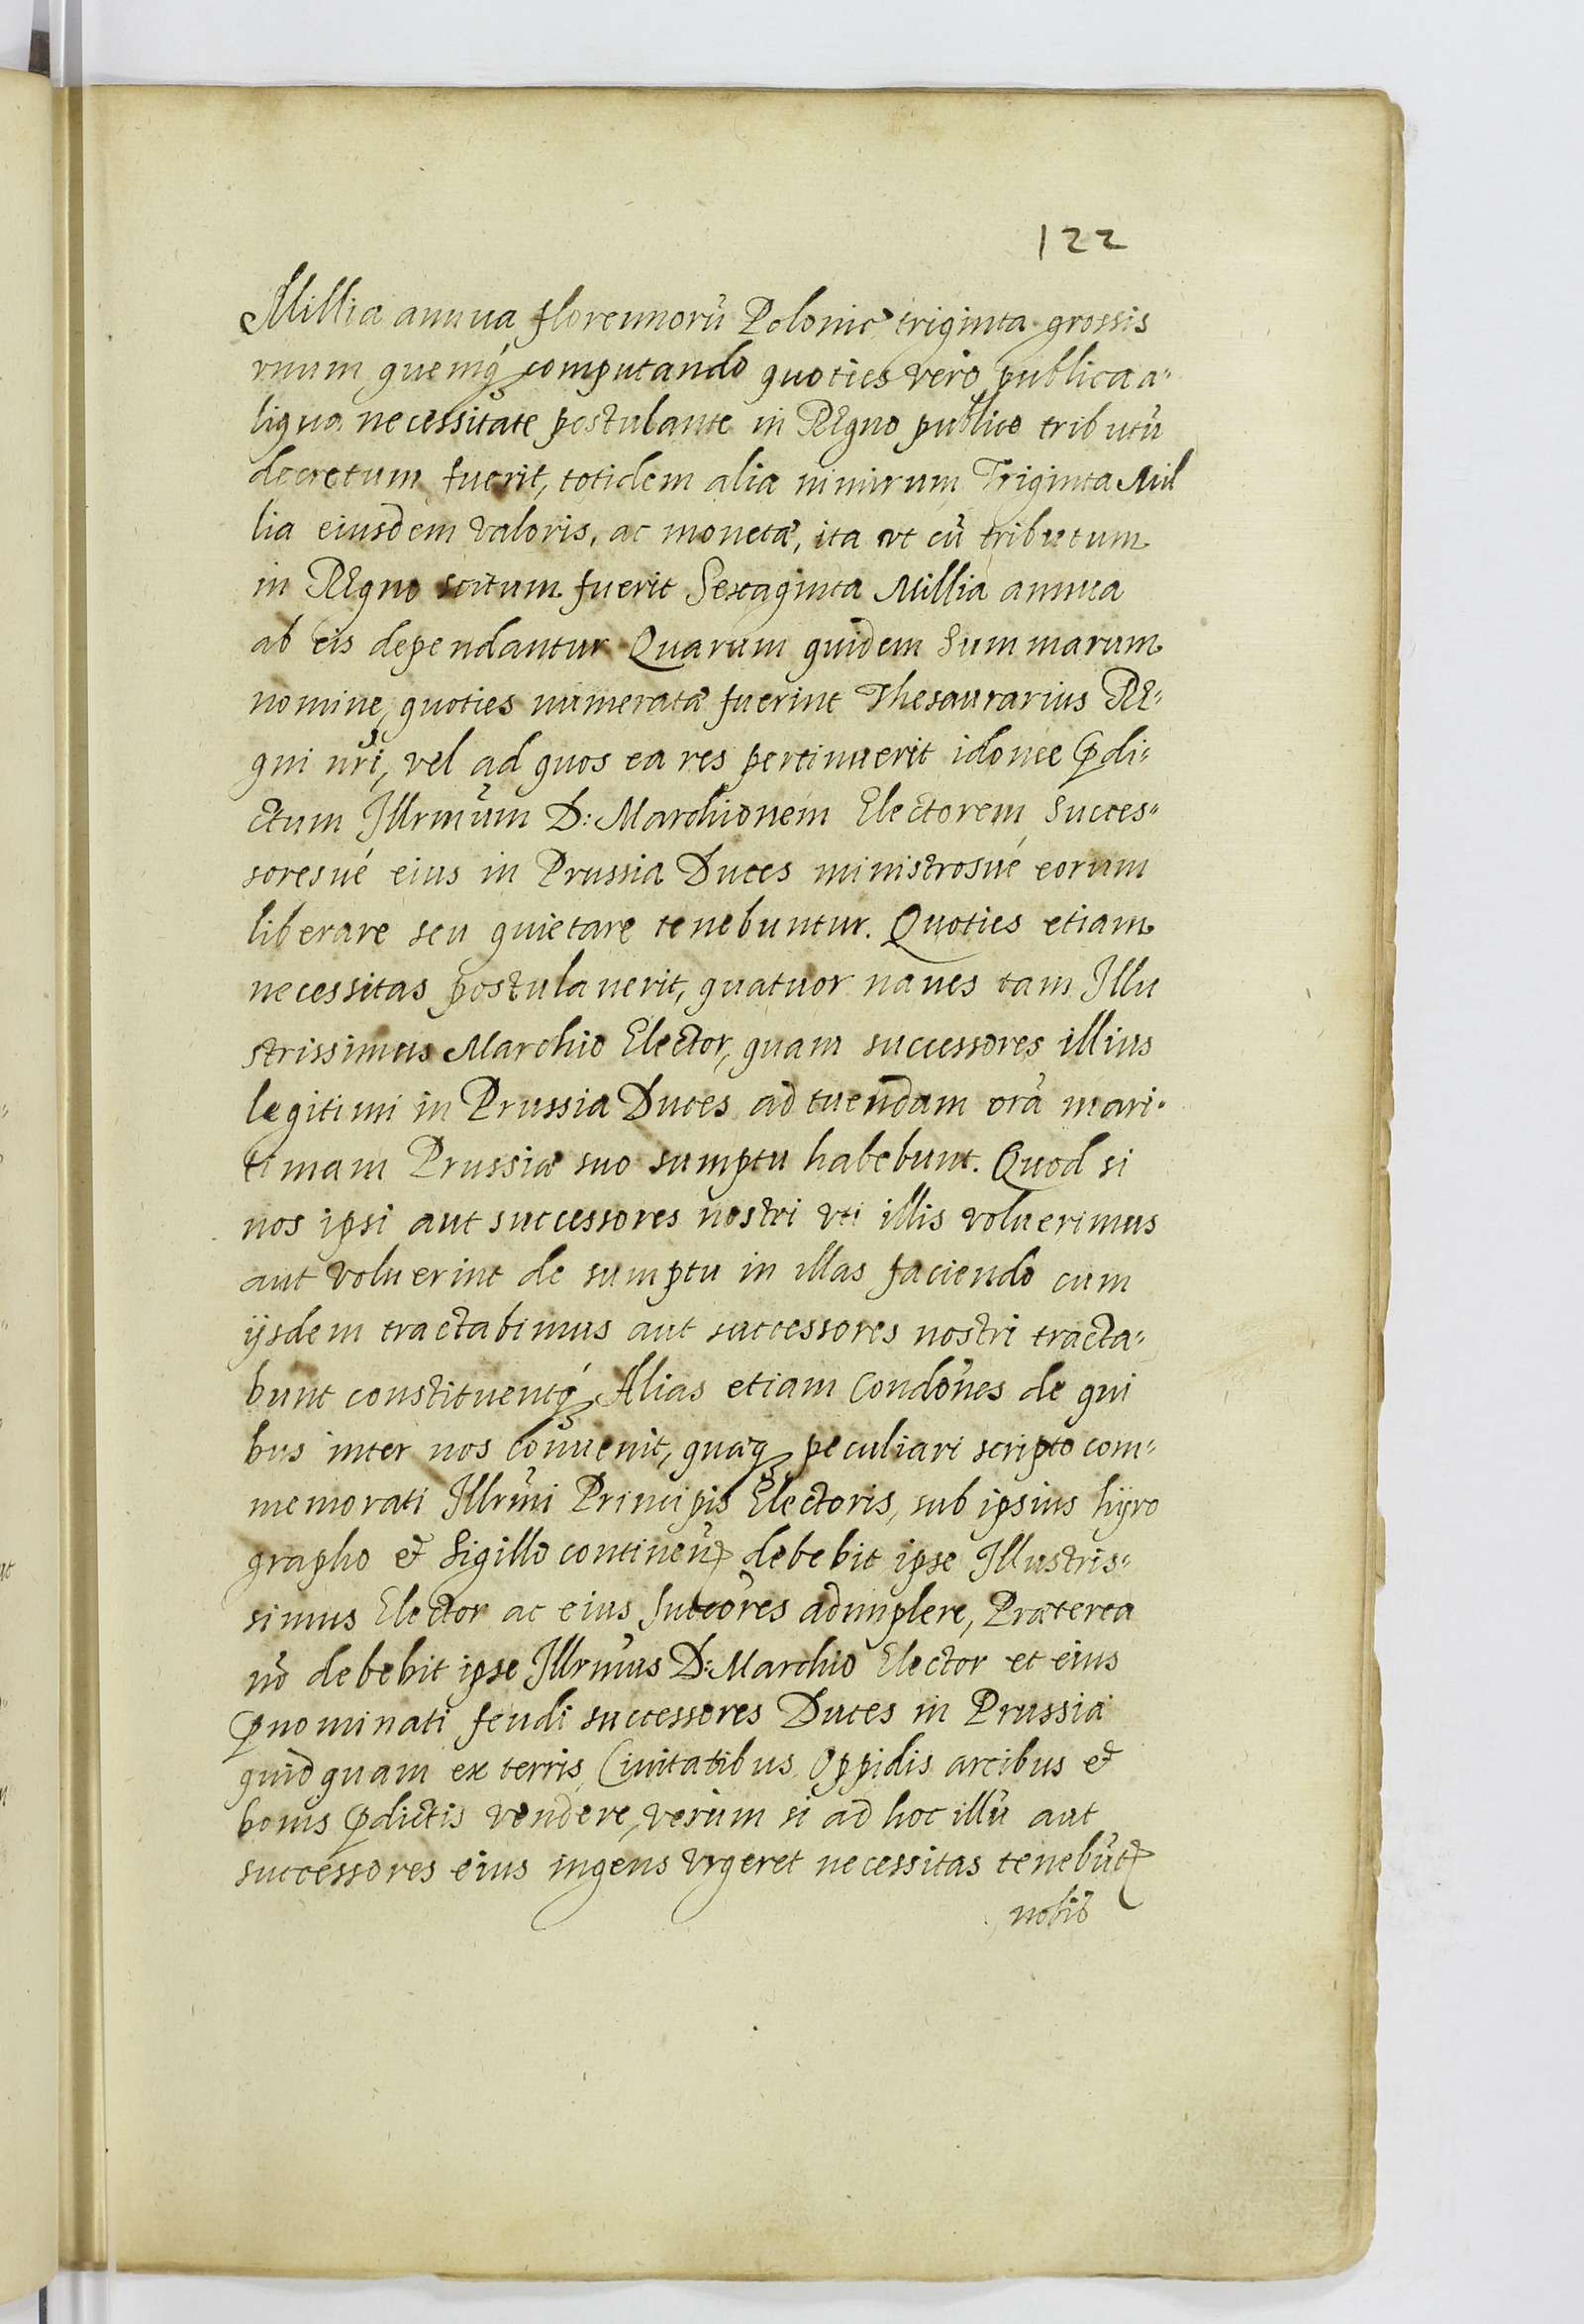 122
Millia annua florennorū Polonic triginta grossis
vnum quemq́ꝫ computando quoties vero publica a-
liqua necessitate postulante in REgno publico tributū
decretum fuerit, totidem alia nimirum Triginta Mil
lia eiusdem valoris, ac monetæ, ita vt cū tributum
in REgno scitum fuerit Sexaginta Millia annua
ab eis dependantur Quarum quidem Summarum
nomine, quoties numeratæ fuerint Thesaurarius RE-
gni nri, vel ad quos ea res pertinuerit idonee p̄di-
ctum Illrmūm D: Marchionem Electorem Succes-
soresué eius in Prussia Duces ministrosué eorum
liberare seu quietare tenebuntur. Quoties etiam
necessitas postulauerit, quatuor naues tam Illu
strissimus Marchio Elector, quam successores illius
legitimi in Prussia Duces ad tuendam orā mari-
timam Prussiæ suo sumptu habebunt. Quod si
nos ipsi aut successores nostri vti illis voluerimus
aut voluerint de sumptu in illas faciendo cum
ijsdem tractabimus aut successores nostri tracta-
bunt constituentq́ꝫ Alias etiam Condōnes de qui
bus inter nos conuenit, quæqꝫ peculiari scripto com-
memorati Illrmī Principis Electoris, sub ipsius hÿro
grapho et Sigillo continenť debebit ipse Illustris-
simus Elector ac eius Succōres adimplere, Præterea
nō debebit ipse Illrmūs D: Marchio Elector et eius
p̄nominati feudi successores Duces in Prussia
quidquam ex terris Ciuitatibus Oppidis arcibus et
bonis p̄dictis vendere, verum si ad hoc illū aut
successores eius ingens vrgeret necessitas tenebūť
nobis